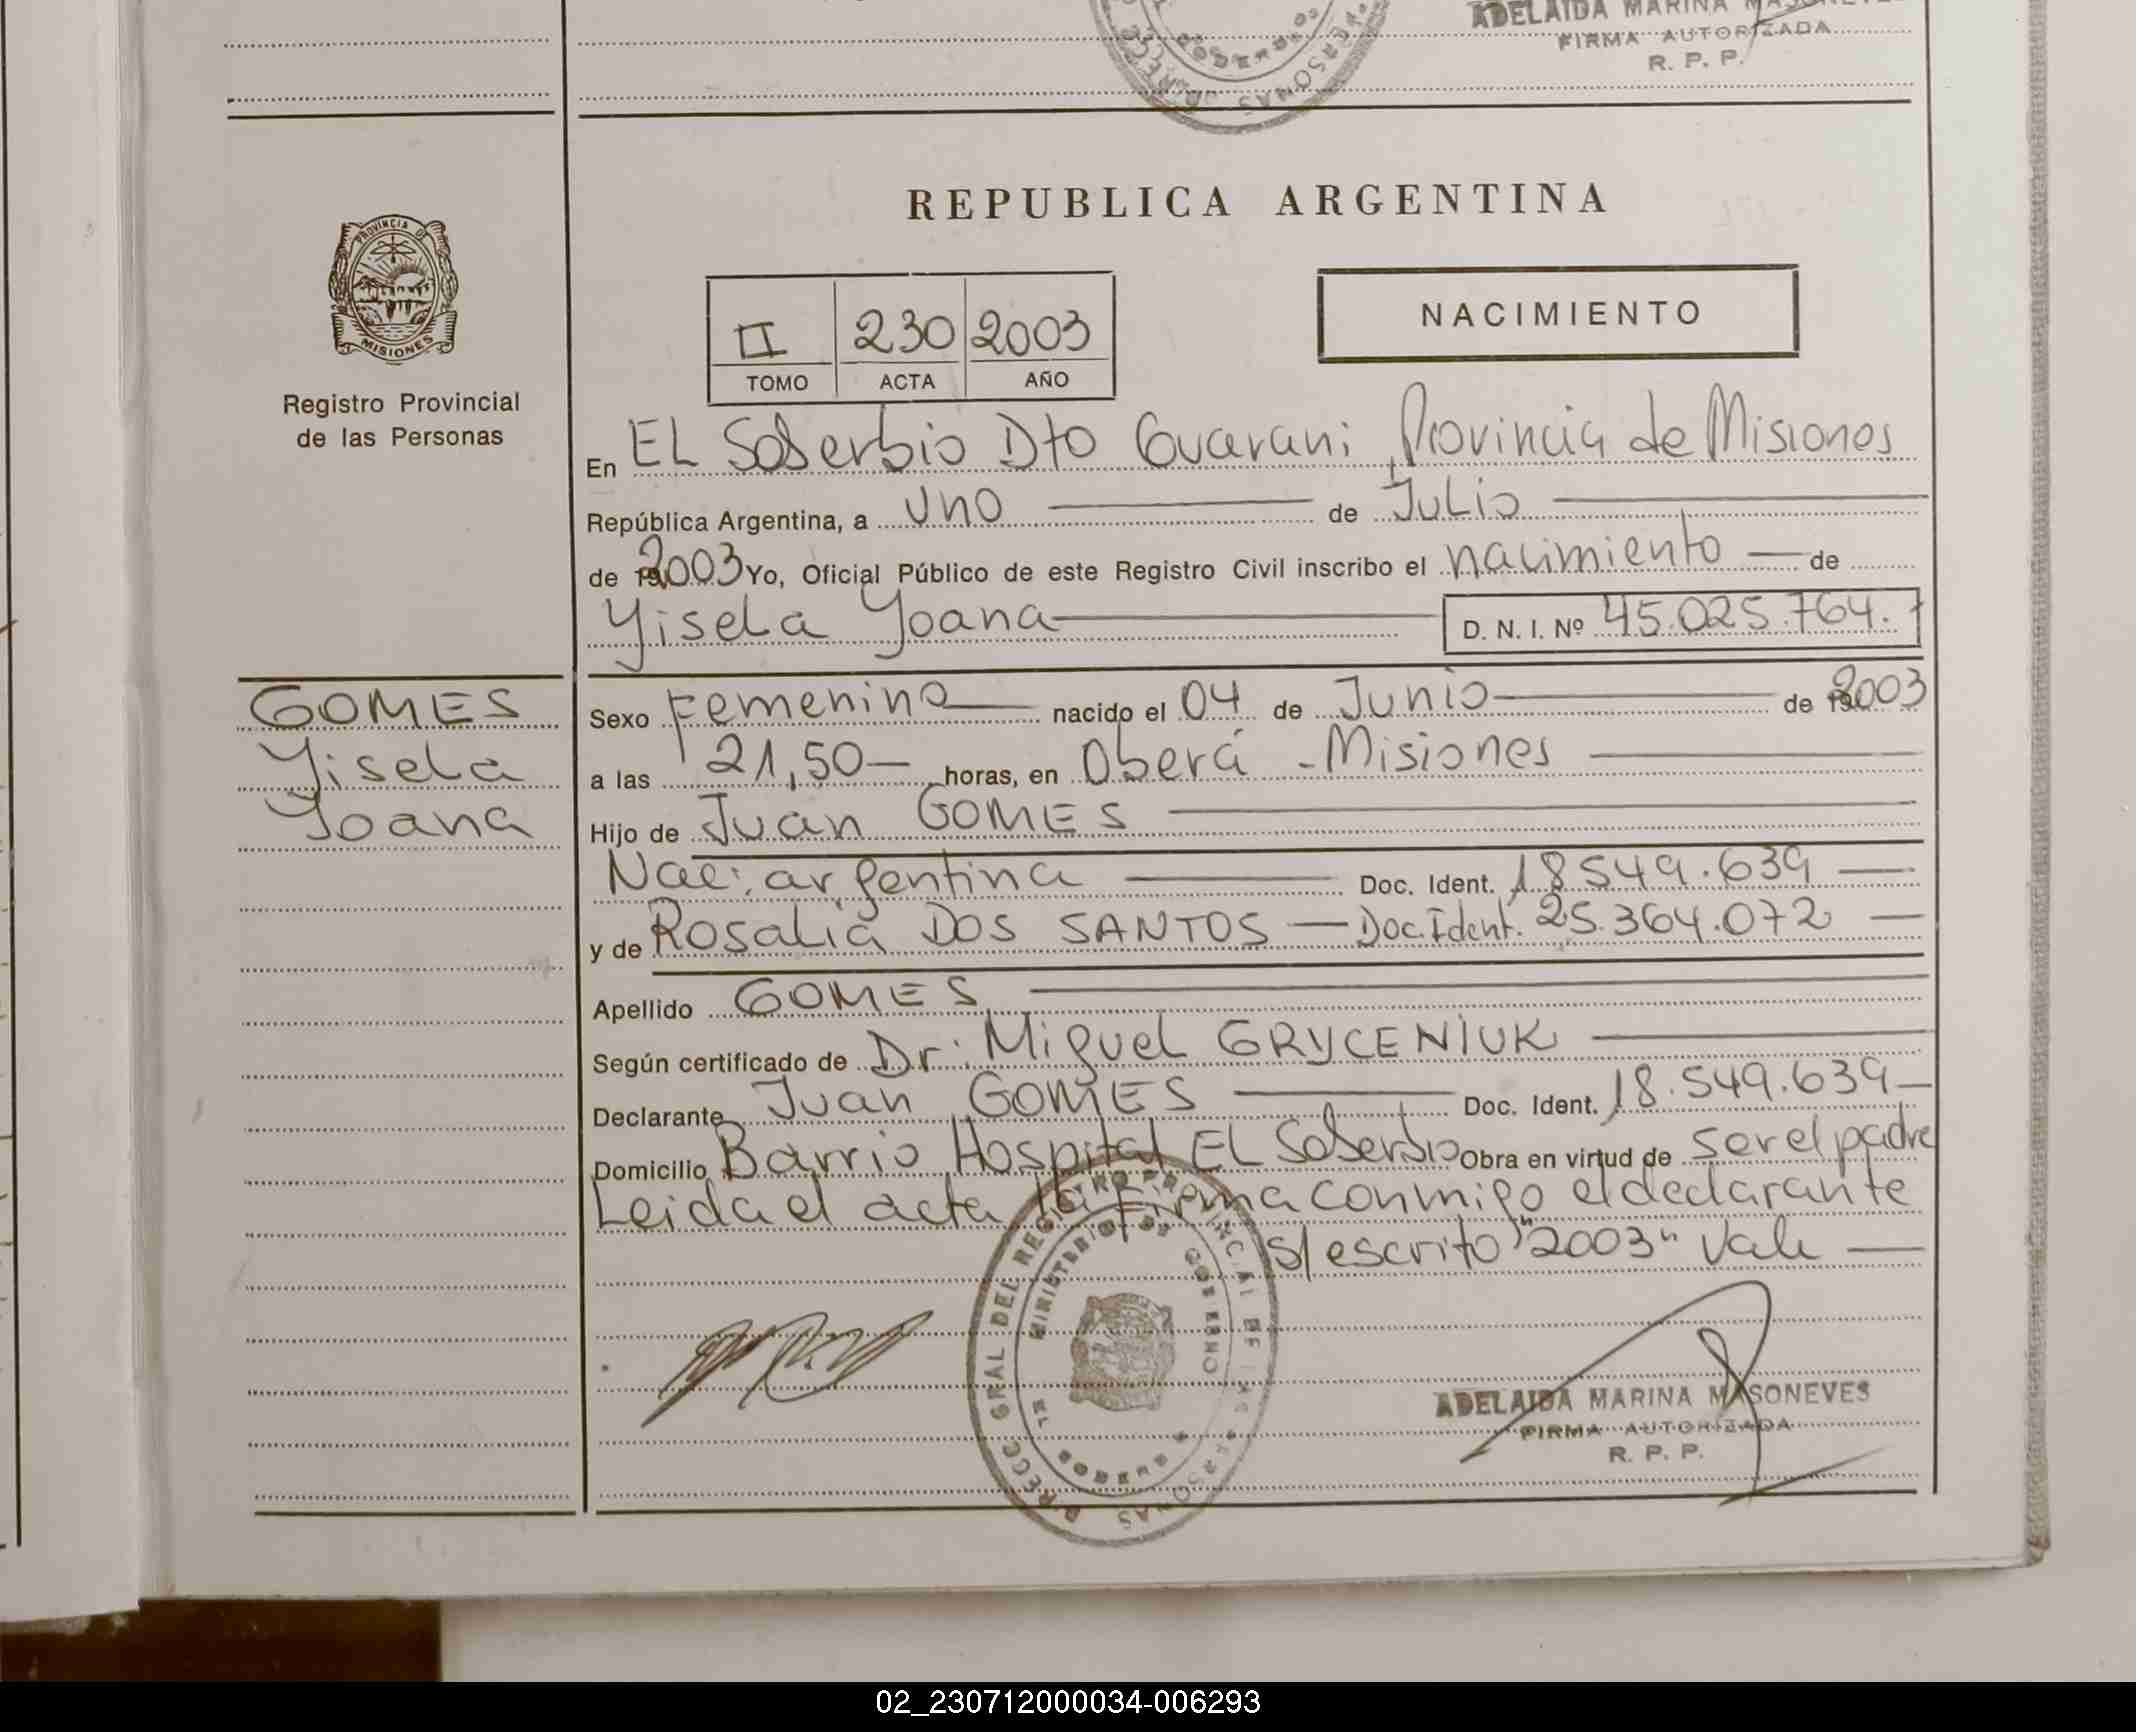 ADELAIDA MARINA MASONEVES
FIRMA AUTORIZADA
R. P. P.
PROVINCIA DE
MISIONES
Registro Provincial
de las Personas
REPUBLICA ARGENTINA
II 230 2003
TOMO ACTA AÑO
NACIMIENTO
En EL Soberbio Dto Guarani Provincia de Misiones
República Argentina, a uno de Julio
de 2003 Yo, Oficial Público de este Registro Civil inscribo el nacimiento de
Yisela Yoana D. N. I. Nº 45.025.764.
GOMES
Yisela
Yoana
Sexo Femenino nacido el 04 de Junio de 2003
a las 21,50 horas, en Oberá - Misiones
Hijo de Juan GOMES
Nac: argentina Doc. Ident. 18.549.639
y de Rosalia DOS SANTOS Doc. Ident. 25.364.072
Apellido GOMES
Según certificado de Dr: Miguel GRYCENIUK
Declarante Juan GOMES Doc. Ident. 18.549.639
Domicilio Barrio Hospital EL Soberbio Obra en virtud de ser el padre
Leida el acta la Firma conmigo el declarante
S/ escrito "2003" Vale
DIRECC GRAL DEL REGISTRO PROVINCIAL DE LAS PERSONAS
MINISTERIO DE GOBIERNO
EL SOBERBIO
ADELAIDA MARINA MASONEVES
FIRMA AUTORIZADA
R. P. P.
02_230712000034-006293